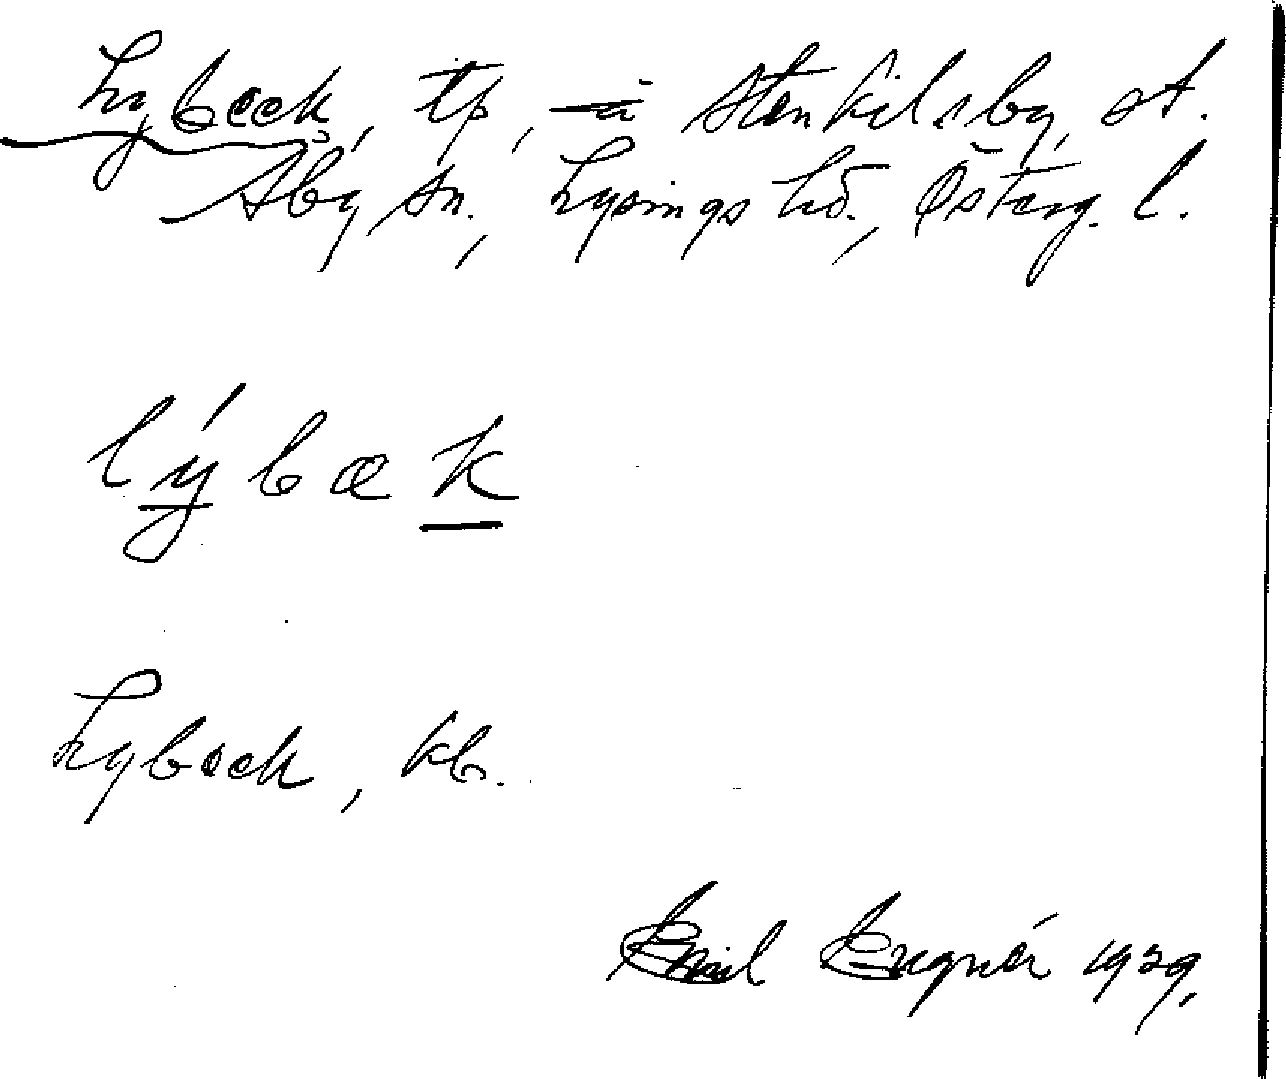 Lybeck, tp, å Stenkilsby, st.
Åby sn., Lysings hd., Österg. l.
lýbæk
Lybeck, kb.
Emil Eugnér 1929.